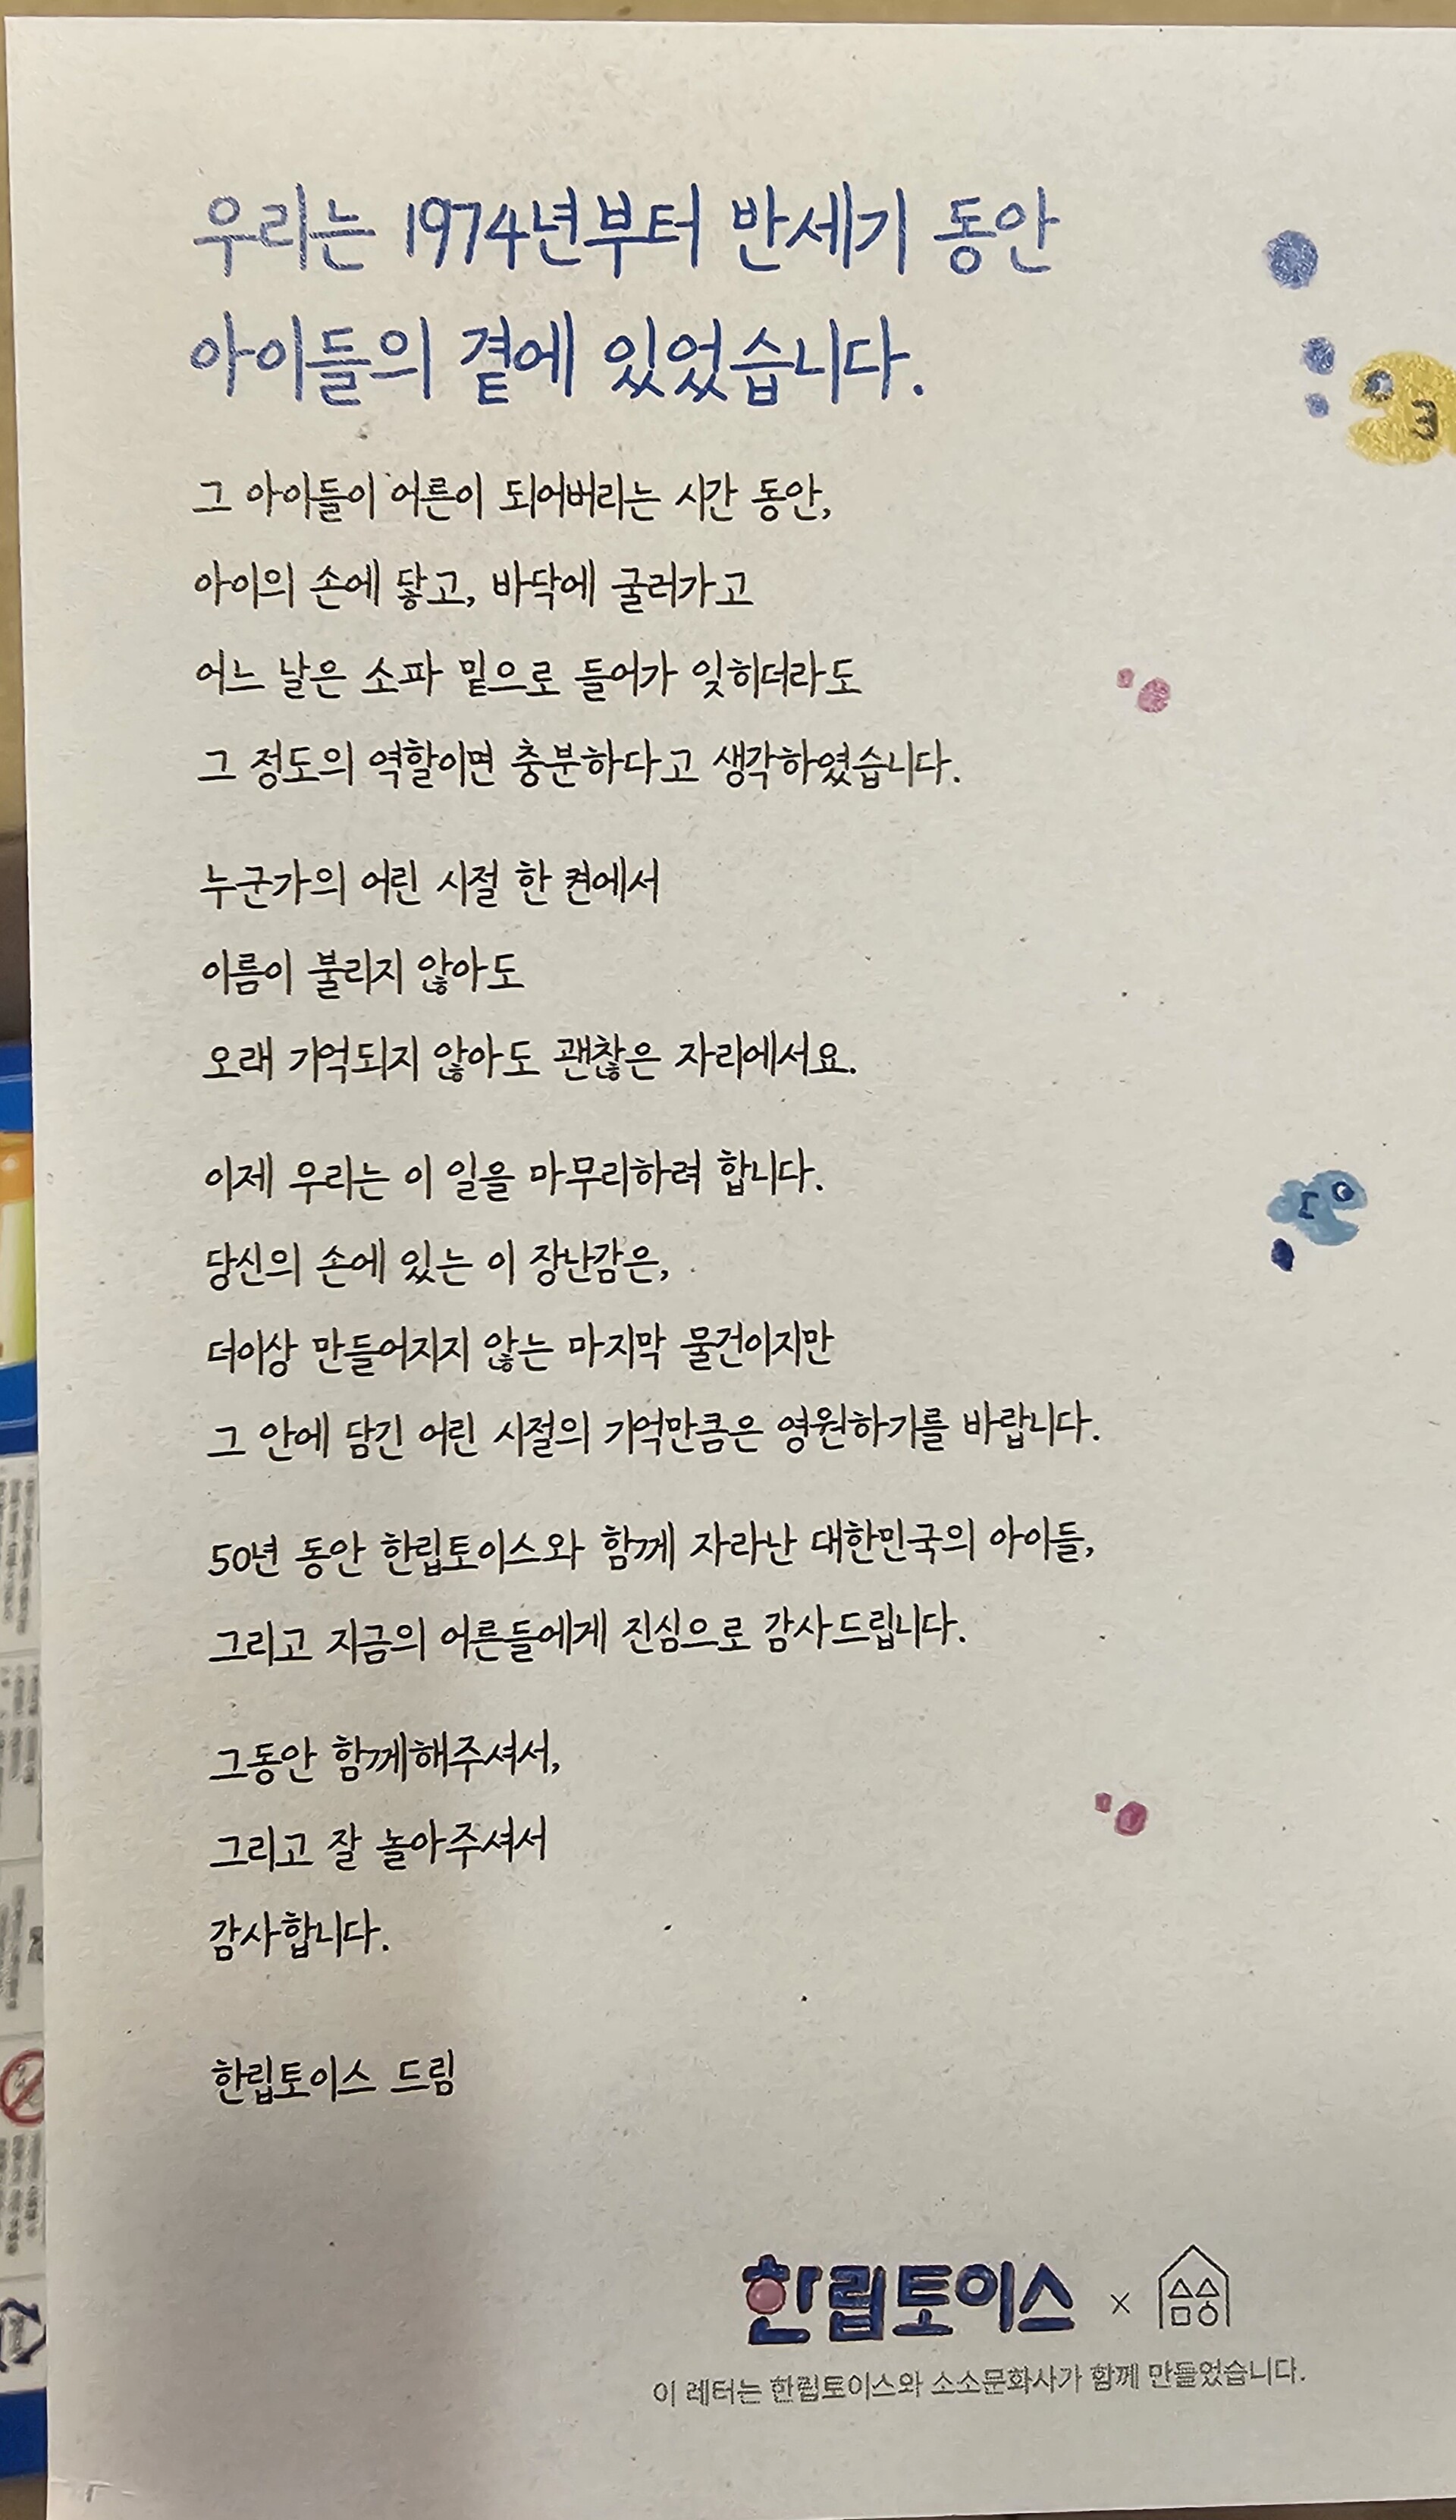 우리는 1974년부터 반세기 동안
아이들의 곁에 있었습니다.
그 아이들이 어른이 되어버리는 시간 동안,
아이의 손에 닿고, 바닥에 굴러가고
어느 날은 소파 밑으로 들어가 잊히더라도
그 정도의 역할이면 충분하다고 생각하였습니다.
누군가의 어린 시절 한 켠에서
이름이 불리지 않아도
오래 기억되지 않아도 괜찮은 자리에서요.
이제 우리는 이 일을 마무리하려 합니다.
당신의 손에 있는 이 장난감은,
더이상 만들어지지 않는 마지막 물건이지만
그 안에 담긴 어린 시절의 기억만큼은 영원하기를 바랍니다.
50년 동안 한립토이스와 함께 자라난 대한민국의 아이들,
그리고 지금의 어른들에게 진심으로 감사드립니다.
그동안 함께해주셔서,
그리고 잘 놀아주셔서
감사합니다.
한립토이스 드림
한립토이스 x
이 레터는 한립토이스와 소소문화사가 함께 만들었습니다.